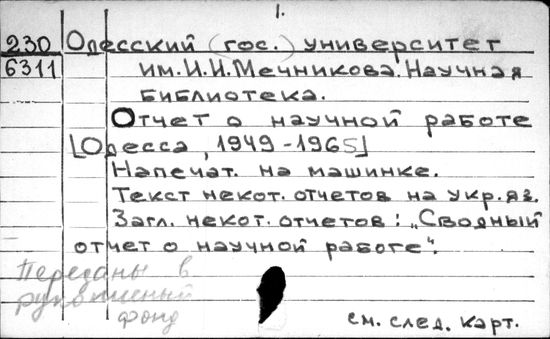 1.
230 Одесский (гос.) университет
6311 им. И.И. Мечникова. Научная
библиотека.
Отчет о научной работе
[Одесса, 1949-1965]
Напечат. на машинке.
Текст некот. отчетов на укр. яз.
Загл. некот. отчетов: „Сводный
отчет о научной работе".
Переданы в
рукописный
фонд
см. след. карт.